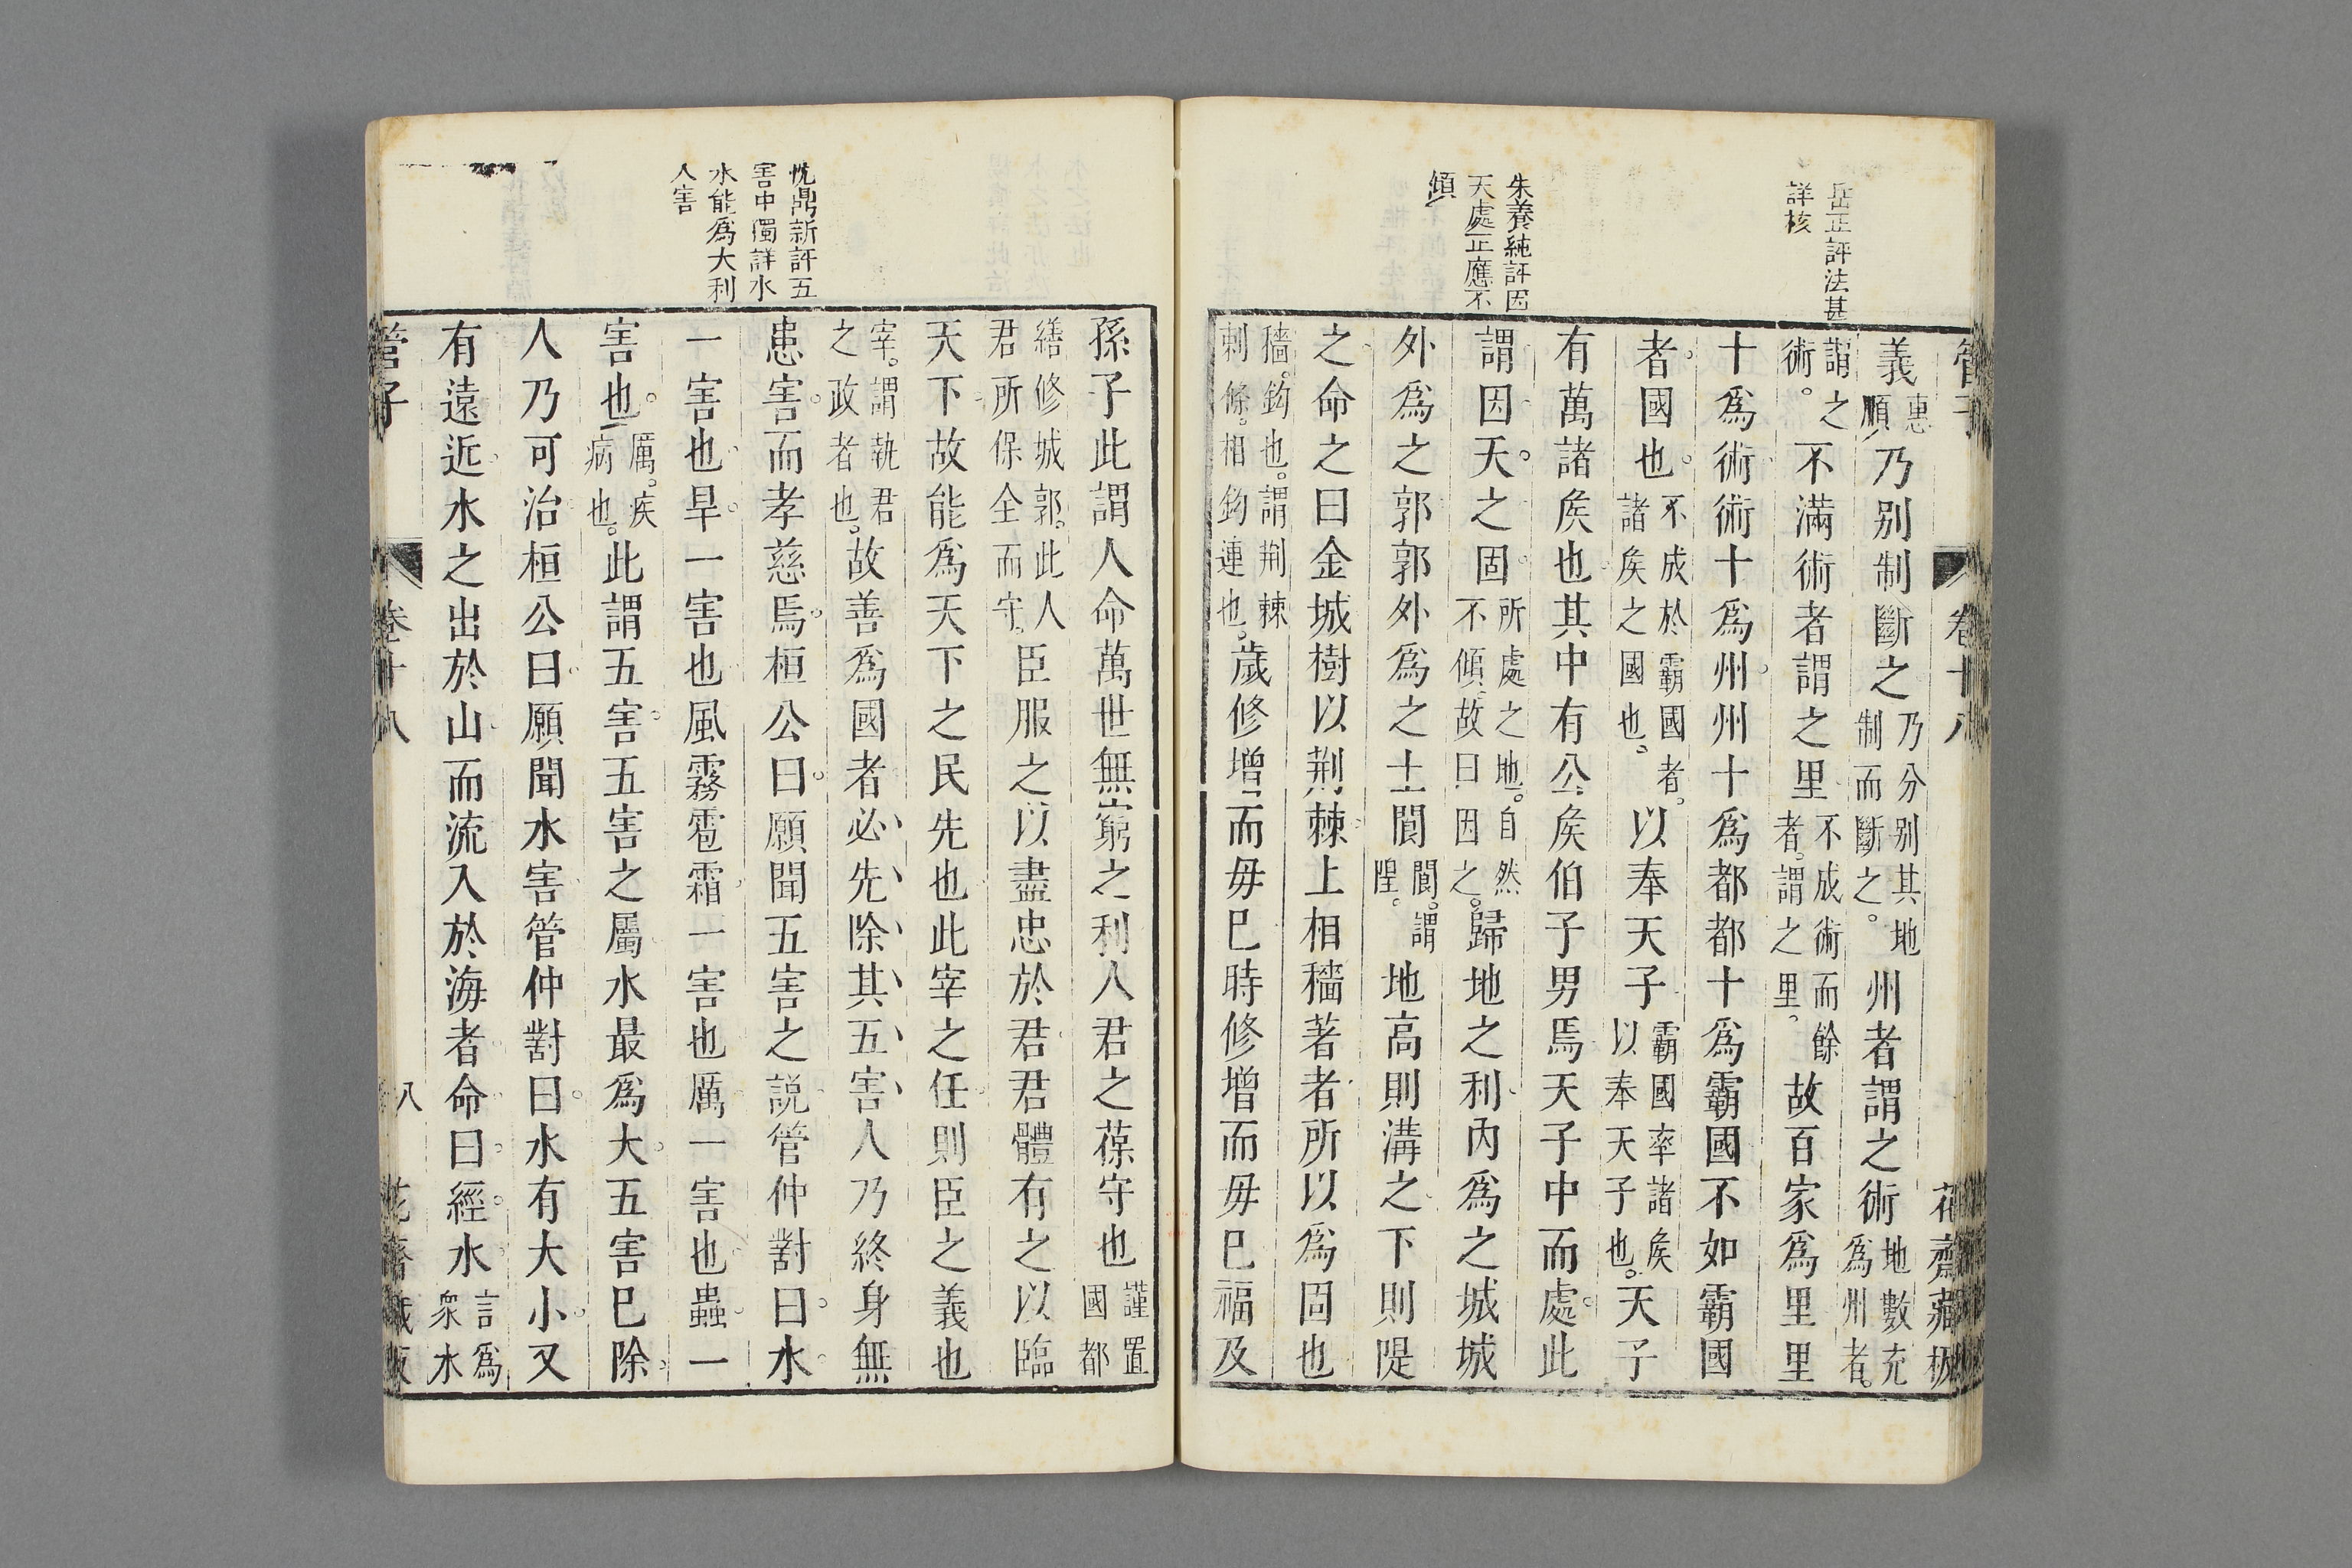 管子　卷十八　花齋藏板
岳正評法甚
詳核
朱養純評因
天處正應不
傾
義惠順乃别制斷之乃分别其地制而斷之。州者謂之術地數充爲州者。
謂之術。不滿術者謂之里不成術而餘者。謂之里。故百家爲里里
十爲術術十爲州州十爲都都十爲霸國不如霸國
者國也不成於霸國者。諸矦之國也。以奉天子霸國率諸矦以奉天子也。天子
有萬諸矦也其中有公矦伯子男焉天子中而處此
謂因天之固所處之地。自然不傾。故曰因之。歸地之利内爲之城城
外爲之郭郭外爲之土閬閬。謂隍。地高則溝之下則隄
之命之曰金城樹以荆棘上相穡著者所以爲固也
穡。鈎也。謂荆棘刺條。相鈎連也。歲修增而毋巳時修增而毋巳福及
忱鼎新評五
害中獨詳水
水能爲大利
人害
孫子此謂人命萬世無窮之利人君之葆守也謹置國都
繕修城郭。此人君所保全而守。臣服之以盡忠於君君體有之以臨
天下故能爲天下之民先也此宰之任則臣之義也
宰。謂執君之政者也。故善爲國者必先除其五害人乃終身無
患害而孝慈焉桓公曰願聞五害之説管仲對曰水
一害也旱一害也風霧雹霜一害也厲一害也蟲一
害也厲。疾病也。此謂五害五害之屬水最爲大五害巳除
人乃可治桓公曰願聞水害管仲對曰水有大小又
有遠近水之出於山而流入於海者命曰經水言爲衆水
管子　卷十八　八　花齋藏板